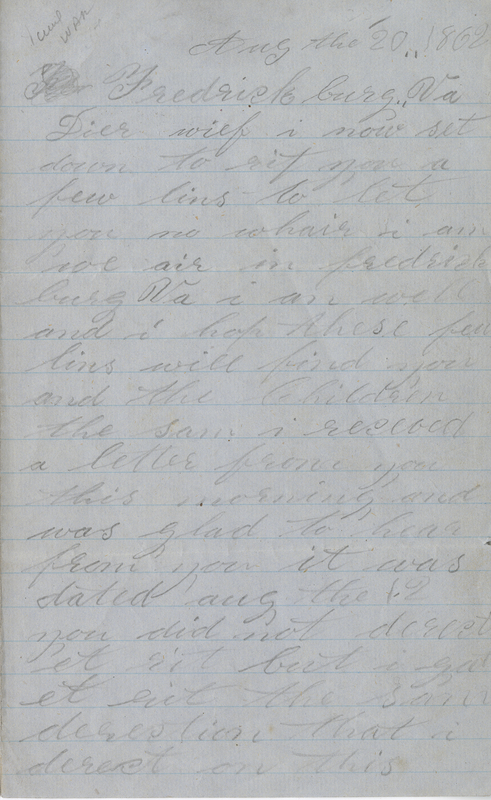 Civil
War
Aug the 20, 1862
Fredrickburg, Va
Dier wief i now set
down to rit you a
few lins to let
you no whair i am
we air in fredrick
burg Va i am well
and i hop these few
lins will find you
and the Children
the sam i received
a letter from you
this morning and
was glad to hear
from you it was
dated aug the 12
you did not derect
et rit but i gat
et rit the sam
derection that i
derect on this